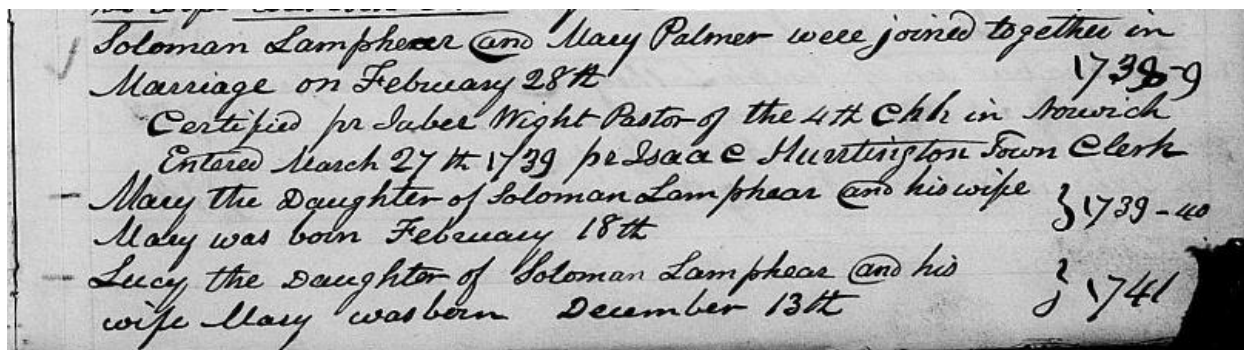 Soloman Lamphear and Mary Palmer were joined together in
Marriage on February 28th 1738-9
Certified pr Jabez Wight Pastor of the 4th Chh in Norwich
Entered March 27th 1739 pr Isaac Huntington Town Clerk
Mary the Daughter of Soloman Lamphear and his wife
Mary was born February 18th } 1739-40
Lucy the Daughter of Soloman Lamphear and his
wife Mary was born December 13th } 1741